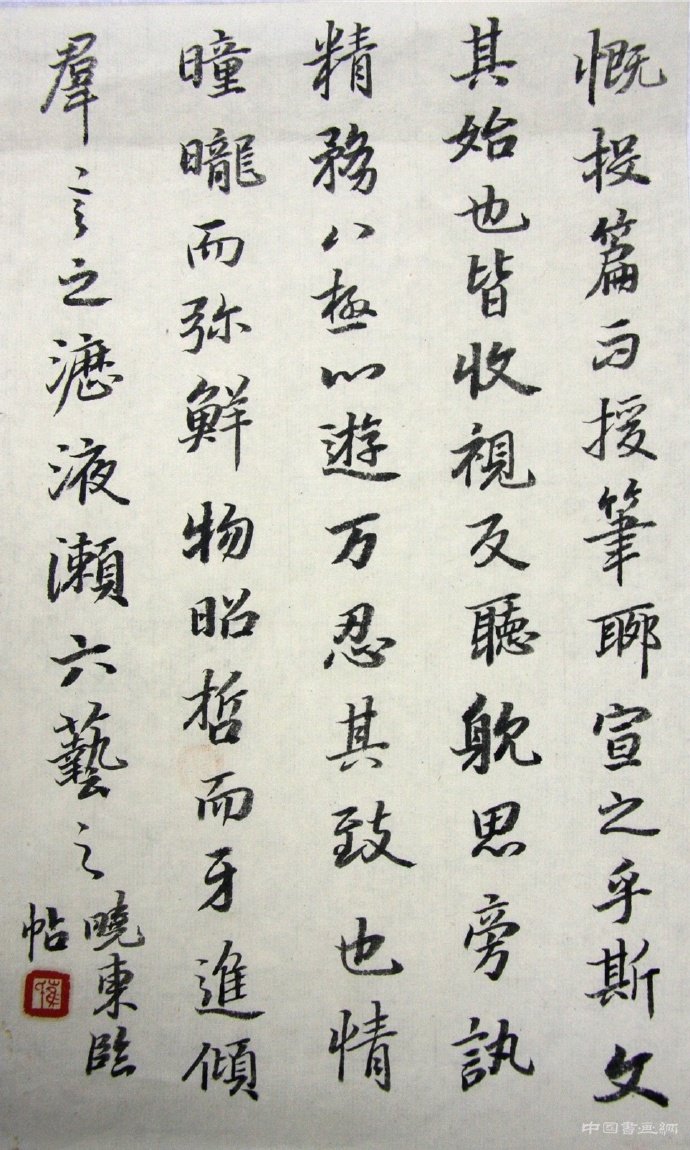 慨投篇而授筆聊宣之乎斯文
其始也皆收視反聽躭思旁訊
精務八極心遊万忍其致也情
曈曨而弥鮮物昭哲而牙進傾
羣言之瀝液漱六藝之
曉東臨
帖
中国書画網